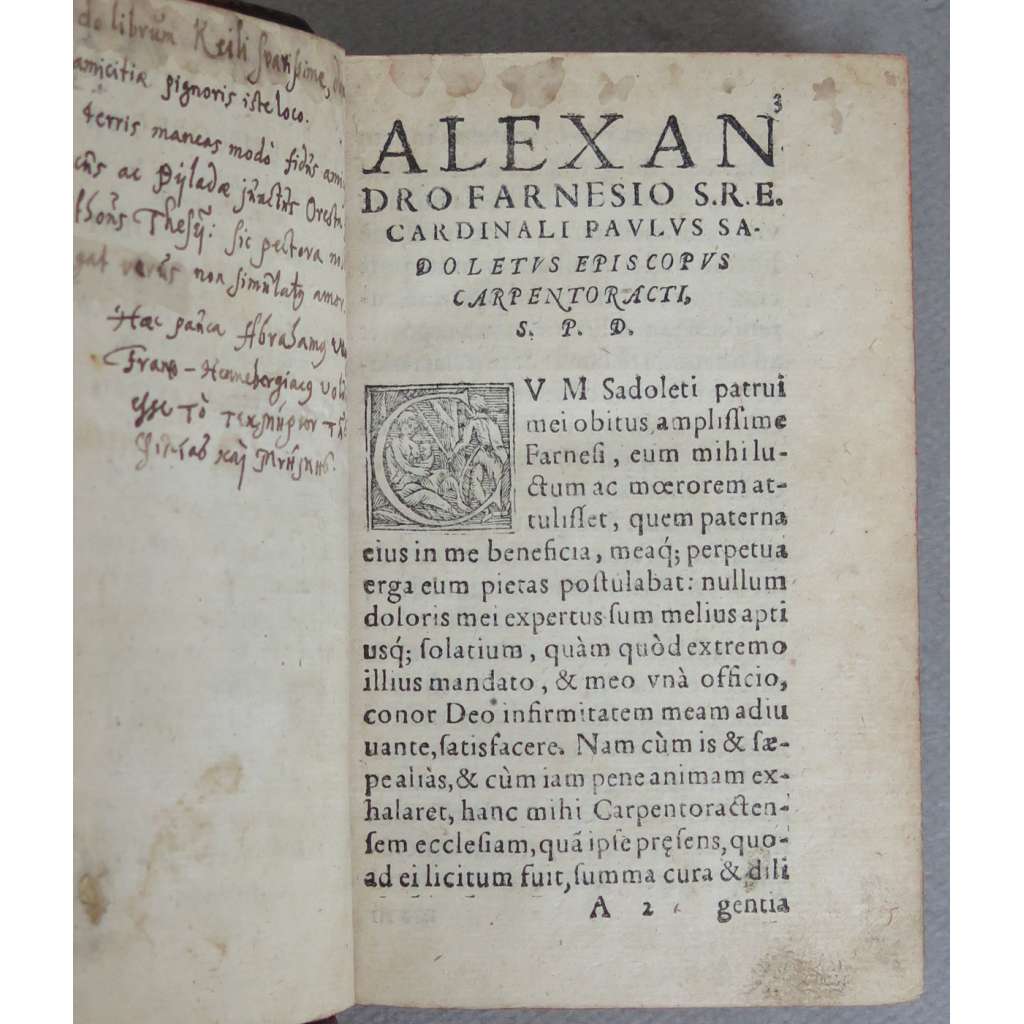 do librum Keili
amicitiæ pignoris iste loco.
terris maneas modò fidus ami
ac Pyladæ junctus Oresti
Thesei: sic pectora
verus non simulatus amor.
Hæc pauca Abrahamus
Franco-Hennebergiacus
esse τὸ τεκμήριον τῆς
φιλίας καὶ μνήμης.
3
ALEXAN
DRO FARNESIO S.R.E.
CARDINALI PAVLVS SA-
DOLETVS EPISCOPVS
CARPENTORACTI,
S. P. D.
CVM Sadoleti patrui
mei obitus, ampliſſime
Farneſi, eum mihi lu-
ctum ac mœrorem at-
tuliſſet, quem paterna
eius in me beneficia, meaq́; perpetua
erga eum pietas poſtulabat: nullum
doloris mei expertus ſum melius apti
usq́; ſolatium, quàm quòd extremo
illius mandato, & meo vnà officio,
conor Deo infirmitatem meam adiu
uante, ſatisfacere. Nam cùm is & ſæ-
pe aliàs, & cùm iam pene animam ex-
halaret, hanc mihi Carpentoracten-
ſem eccleſiam, quã ipſe pręſens, quo-
ad ei licitum fuit, ſumma cura & dili
A 2 gentia